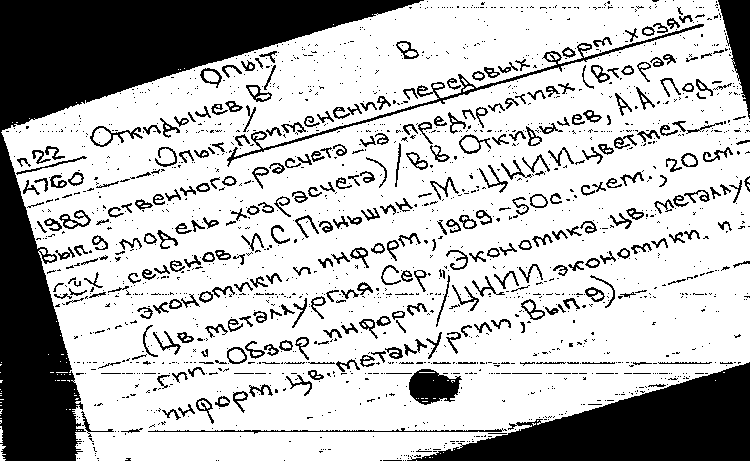 Опыт В
Откидычев, В
п.22 Опыт применения передовых форм хозяй-
4760 ственного расчета на предприятиях (Вторая
1989 модель хозрасчета) / В.В. Откидычев, А.А. Под-
Вып.9 сеченов, И.С. Паньшин. - М.: ЦНИИ цветмет
экономики и информ., 1989. - 50с.: схем.; 20 см. -
(Цв. металлургия. Сер. „Экономика цв. металлур
гии": Обзор. информ. / ЦНИИ экономики и
информ. цв. металлургии; Вып. 9)